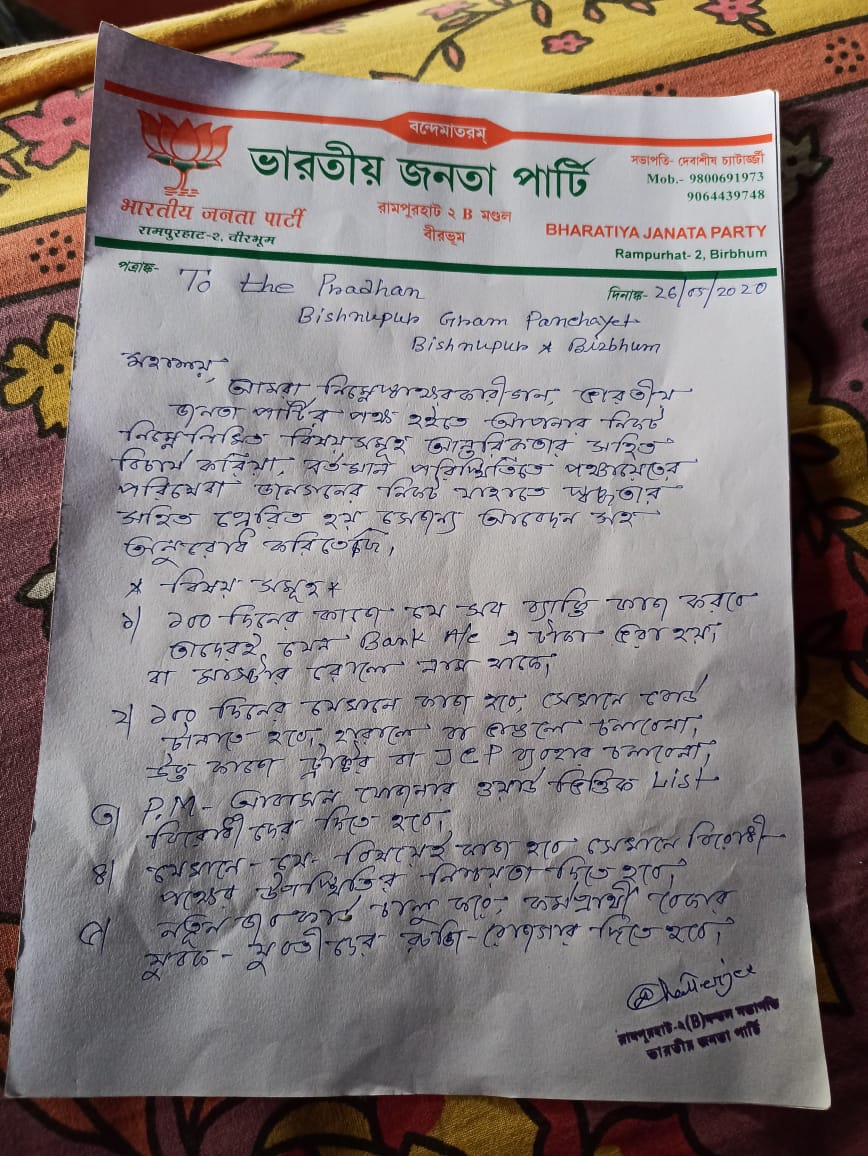 বন্দেমাতরম্
ভারতীয় জনতা পার্টি
সভাপতি- দেবাশীষ চ্যাটার্জ্জী
Mob.- 9800691973
9064439748
भारतीय जनता पार्टी
রামপুরহাট-২, বীরভূম
রামপুরহাট ২ B মণ্ডল
বীরভূম
BHARATIYA JANATA PARTY
Rampurhat- 2, Birbhum
পত্রাঙ্ক-
To the Pradhan
দিনাঙ্ক- 26/05/2020
Bishnupur Gram Panchayet
Bishnupur * Birbhum
মহাশয়,
আমরা নিম্নেস্বাক্ষরকারীগন, ভারতীয়
জনতা পার্টির পক্ষ হইতে আপনার নিকট
নিম্নেলিখিত বিষয়সমূহ আন্তরিকতার সহিত
বিচার্য করিয়া, বর্তমান পরিস্থিতিতে পঞ্চায়েতের
পরিষেবা জনগনের নিকট যাহাতে স্বচ্ছতার
সহিত প্রেরিত হয় সেজন্য আবেদন সহ
অনুরোধ করিতেছি,
* বিষয় সমূহ *
১) ১০০ দিনের কাজে যে সব ব্যাক্তি কাজ করবে
তাদেরই যেন Bank A/c এ টাকা দেওয়া হয়,
বা মাস্টার রোলে নাম থাকে,
২) ১০০ দিনের যেখানে কাজ হবে, সেখানে বোর্ড
টানাতে হবে, হারালে বা ভাঙলে চলবেনা,
উক্ত কাজে ট্রাক্টর বা JCP ব্যবহার চলবেনা,
৩) P.M- আবাসন যোজনার ওয়ার্ড ভিত্তিক List
বিরোধীদের দিতে হবে,
৪) যেখানে- যে- বিষয়েই কাজ হবে সেখানে বিরোধী
পক্ষের উপস্থিতির নিশ্চয়তা দিতে হবে,
৫) নতুন জব কার্ড চালু করে, কর্মপ্রার্থী বেকার
যুবক - যুবতীদের রুজি-রোজগার দিতে হবে,
DChatterjee
রামপুরহাট-২(B)মন্ডল সভাপতি
ভারতীয় জনতা পার্টি